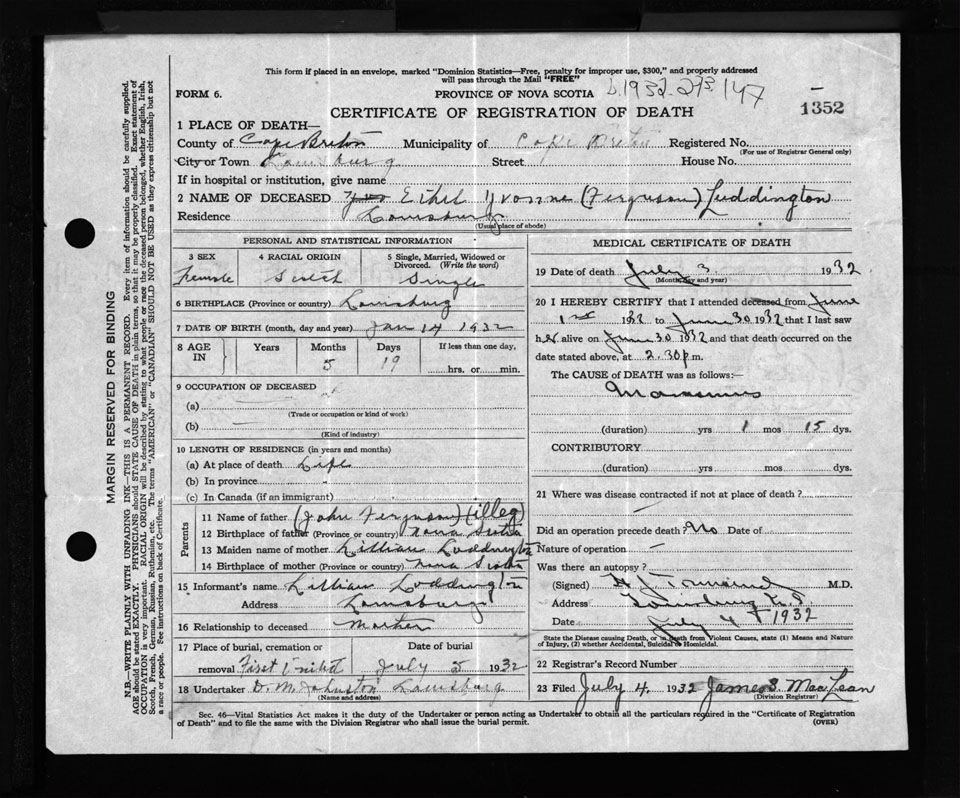 This form if placed in an envelope, marked "Dominion Statistics—Free, penalty for improper use, $300," and properly addressed
will pass through the Mail "FREE"
FORM 6. PROVINCE OF NOVA SCOTIA b.1932-273147
CERTIFICATE OF REGISTRATION OF DEATH 1352
1 PLACE OF DEATH—
County of Cape Breton Municipality of Cape Breton Registered No.
(For use of Registrar General only)
City or Town Louisburg Street House No.
If in hospital or institution, give name
2 NAME OF DECEASED Ethel Yvonne (Ferguson) Luddington
Residence Louisburg
(Usual place of abode)
PERSONAL AND STATISTICAL INFORMATION
3 SEX 4 RACIAL ORIGIN 5 Single, Married, Widowed or
Divorced. (Write the word)
Female Scotch Single
6 BIRTHPLACE (Province or country) Louisburg
7 DATE OF BIRTH (month, day and year) Jan 14 1932
8 AGE IN Years Months Days If less than one day,
5 19 hrs. or min.
9 OCCUPATION OF DECEASED
(a)
(Trade or occupation or kind of work)
(b) —
(Kind of industry)
10 LENGTH OF RESIDENCE (in years and months)
(a) At place of death Life
(b) In province
(c) In Canada (if an immigrant)
Parents
11 Name of father (John Ferguson) (illeg)
12 Birthplace of father (Province or country) Nova Scotia
13 Maiden name of mother Lillian Luddington
14 Birthplace of mother (Province or country) Nova Scotia
15 Informant's name Lillian Loddington
Address Louisburg
16 Relationship to deceased Mother
17 Place of burial, cremation or Date of burial
removal First United July 5 1932
18 Undertaker D. M. Johnston Louisburg
(Name and address)
MEDICAL CERTIFICATE OF DEATH
19 Date of death July 3 1932
(Month, day and year)
20 I HEREBY CERTIFY that I attended deceased from June
1st 1932 to June 30 1932 that I last saw
her alive on June 30 1932 and that death occurred on the
date stated above, at 2.30 p.m.
The CAUSE of DEATH was as follows:—
Marasmus
(duration) yrs 1 mos 15 dys.
CONTRIBUTORY
(duration) yrs mos dys.
21 Where was disease contracted if not at place of death?
Did an operation precede death? No Date of
Nature of operation —
Was there an autopsy?
(Signed) M.D.
Address Louisburg N.S.
Date July 4 1932
State the Disease causing Death, or in Death from Violent Causes, state (1) Means and Nature
of Injury, (2) whether Accidental, Suicidal or Homicidal.
22 Registrar's Record Number
23 Filed July 4. 1932 James S. MacLean
(Division Registrar)
Sec. 46—Vital Statistics Act makes it the duty of the Undertaker or person acting as Undertaker to obtain all the particulars required in the "Certificate of Registration
of Death" and to file the same with the Division Registrar who shall issue the burial permit. (OVER)
MARGIN RESERVED FOR BINDING
N.B.—WRITE PLAINLY WITH UNFADING INK—THIS IS A PERMANENT RECORD. Every item of information should be carefully supplied.
AGE should be stated EXACTLY. PHYSICIANS should STATE CAUSE OF DEATH in plain terms, so that it may be properly classified. Exact statement of
OCCUPATION is very important. RACIAL ORIGIN will be described by stating to what people or race the deceased person belonged, whether English, Irish,
Scotch, French, German, Russian, Ruthenian, etc. The terms "AMERICAN" or "CANADIAN" SHOULD NOT BE USED as they express citizenship but not
a race or people. See instructions on back of Certificate.